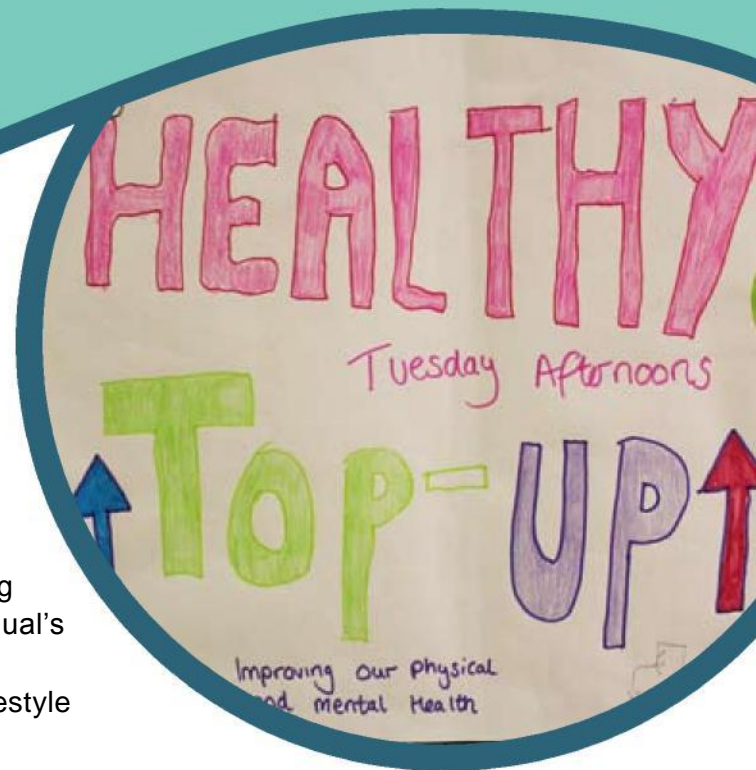 HEALTHY
Tuesday Afternoons
TOP-UP
Improving our physical
and mental Health
g
ual's
estyle